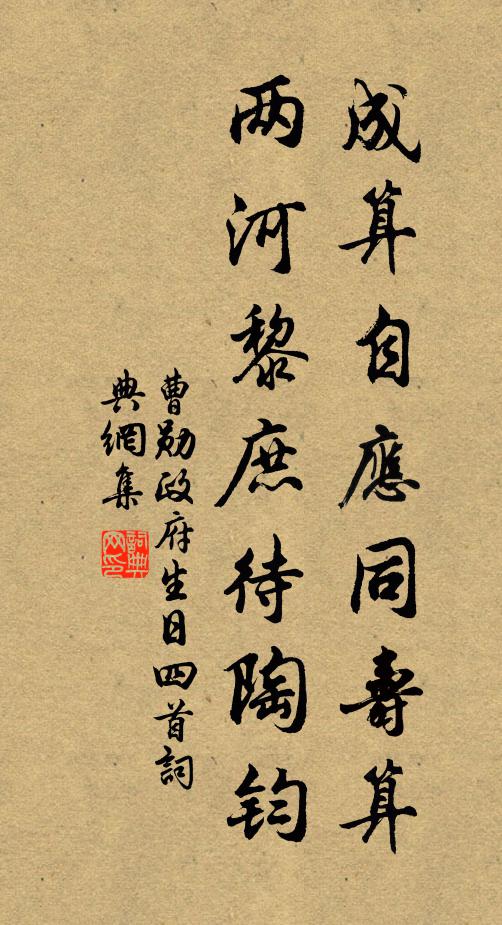 成算自應同壽算
两河黎庶待陶钧
曹勋政府生日四首詞
典網集
詞典网印